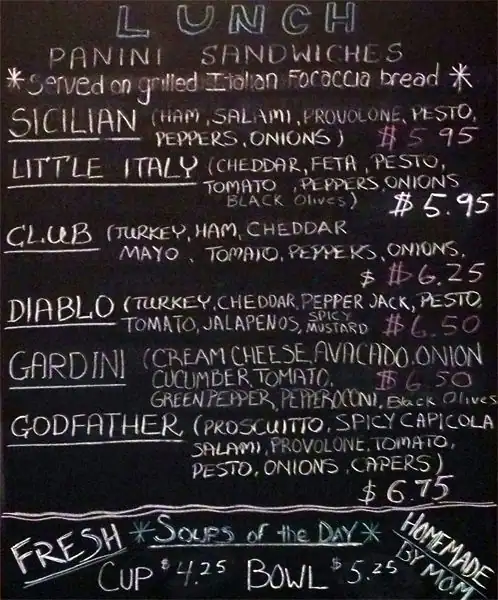 LUNCH
PANINI SANDWICHES
*Served on grilled Italian Focaccia bread *
SICILIAN (HAM, SALAMI, PROVOLONE, PESTO,
PEPPERS, ONIONS) $5.95
LITTLE ITALY (CHEDDAR, FETA, PESTO,
TOMATO, PEPPERS, ONIONS
BLACK Olives) $5.95
CLUB (TURKEY, HAM, CHEDDAR
MAYO, TOMATO, PEPPERS, ONIONS,
$ $6.25
DIABLO (TURKEY, CHEDDAR, PEPPER JACK, PESTO,
TOMATO, JALAPENOS, SPICY MUSTARD $6.50
GARDINI (CREAM CHEESE, AVACADO, ONION
CUCUMBER, TOMATO, $6.50
GREEN PEPPER, PEPPEROCONI, Black Olives
GODFATHER (PROSCUITTO, SPICY CAPICOLA
SALAMI, PROVOLONE, TOMATO,
PESTO, ONIONS, CAPERS)
$6.75
FRESH *SOUPS of the DAY* HOMEMADE BY M.O.M
CUP $4.25 BOWL $5.25